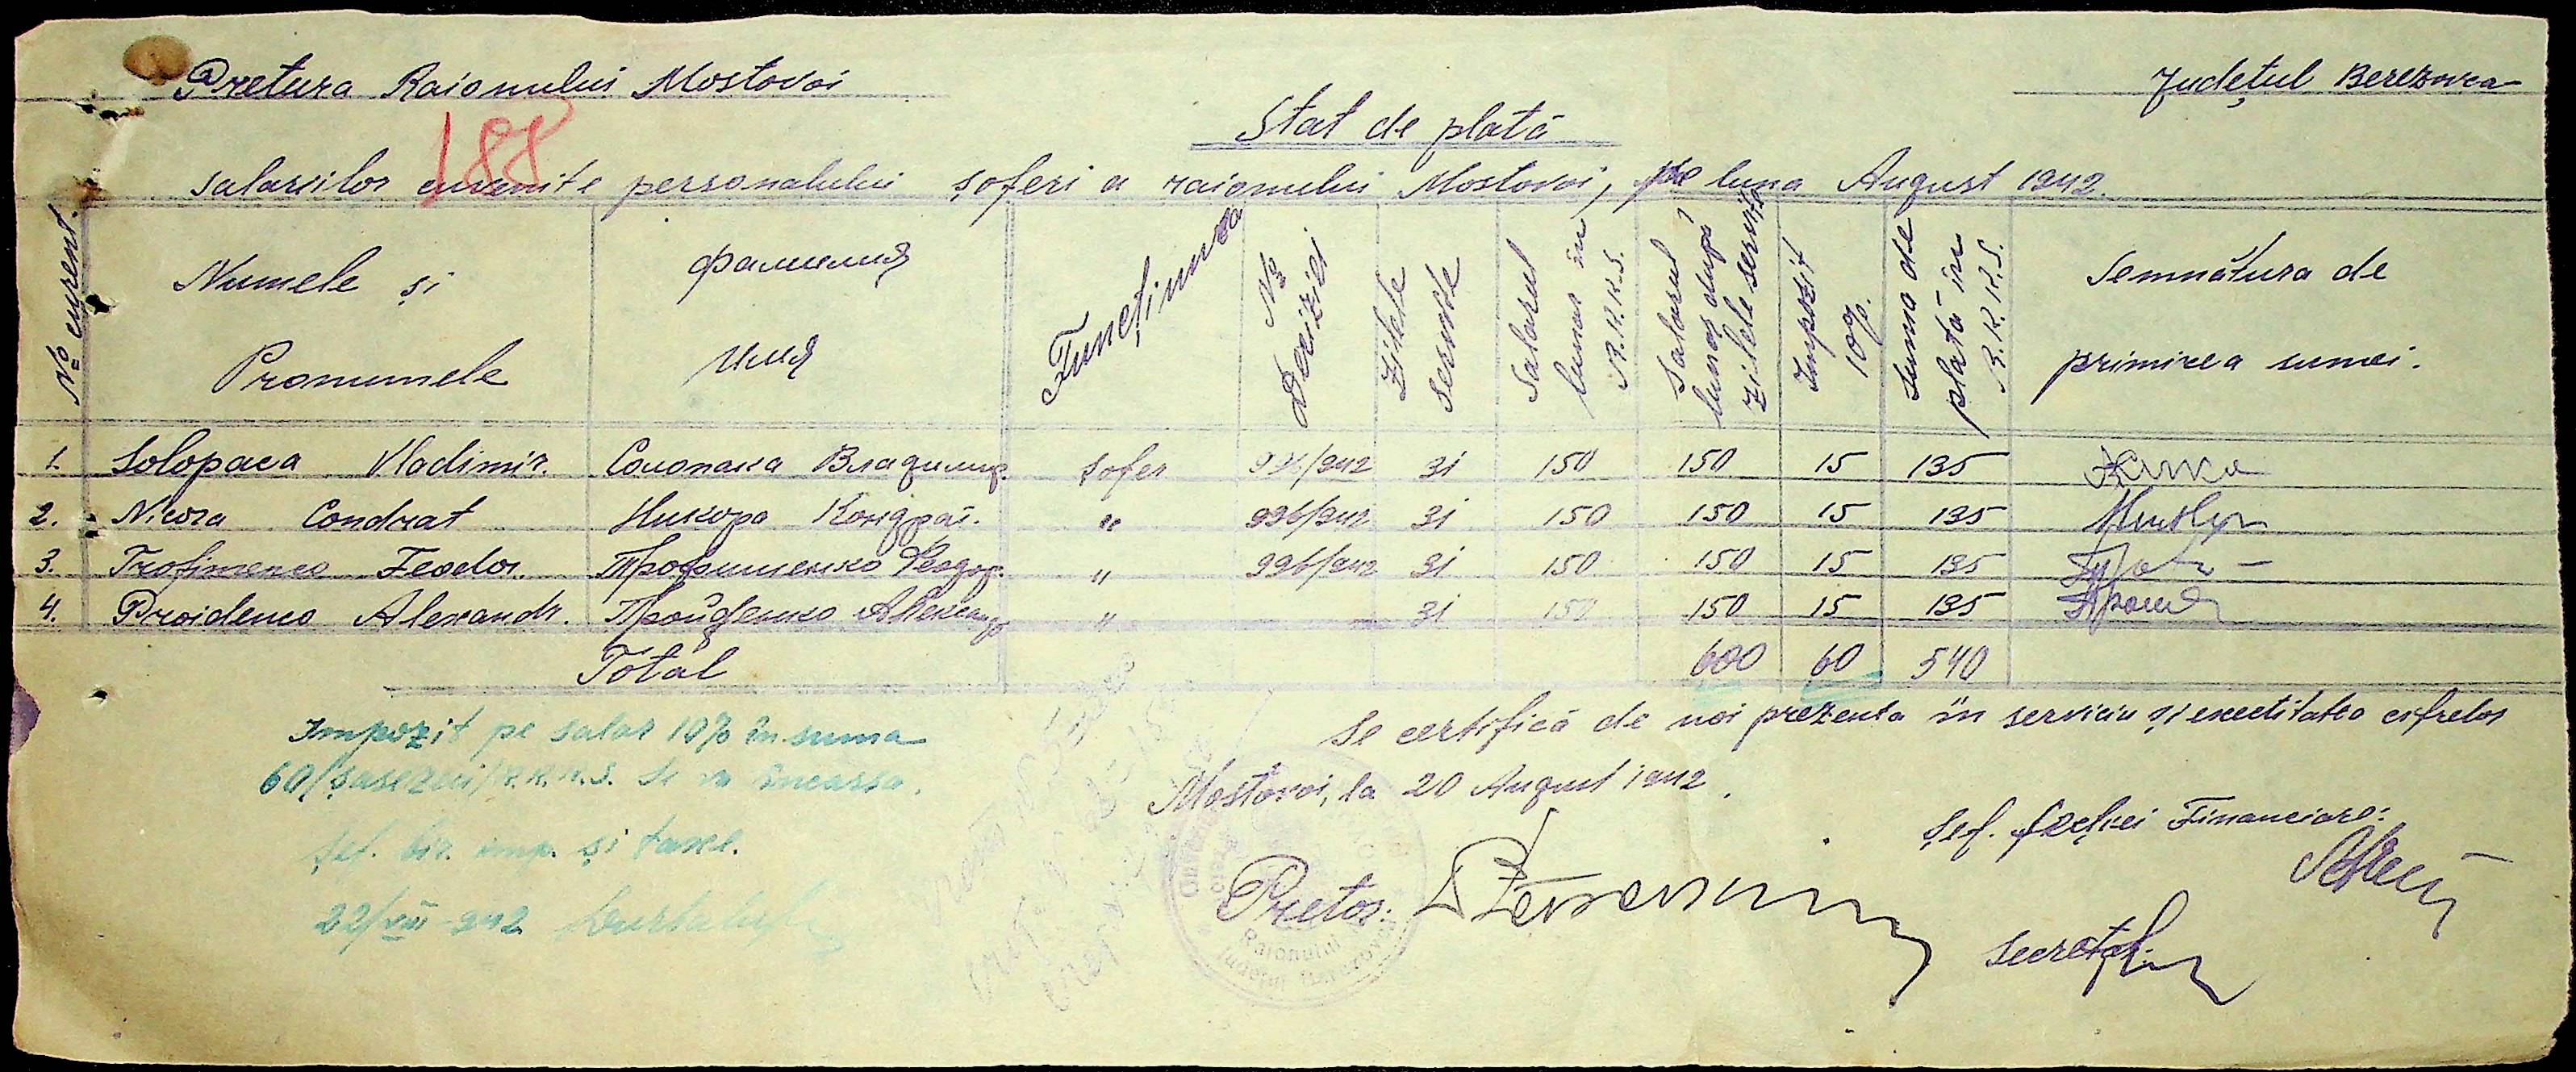 Pretura Raionului Mostovoi
Județul Berezovca
188
Stat de plată
salariilor cuvenite personalului șoferi a raionului Mostovoi, pe luna August 1942.
№ curent. Numele și Pronumele Фамилия Имя Funcțiunea № Deciziei Zilele servite Salarul lunar în R.K.K.S. Salarul lunar după zilele servite Impozit 10% Suma de plată în R.K.K.S. Semnătura de primirea sumei.
1. Solopaca Vladimir. Солопака Владимир. Sofer 996/942 31 150 150 15 135
2. Nicora Condrat Никора Кондрат. " 996/942 31 150 150 15 135
3. Trofimenco Feodor. Трофименко Феодор. " 996/942 31 150 150 15 135
4. Proidenco Alexandr. Пройденко Александр " — 31 150 150 15 135
Total 600 60 540
Se certifică de noi prezenta în serviciu și exectitatea cifrelor
Impozit pe salar 10% în suma
60/șasezeci/R.K.K.S. Se va încasa.
Mostovoi, la 20 August 1942.
Șef. bir. imp. și taxe.
Șef. Secției Financiare:
22/VIII-942
Pretor:
Secretar:
Raionului
Județul Berezovca